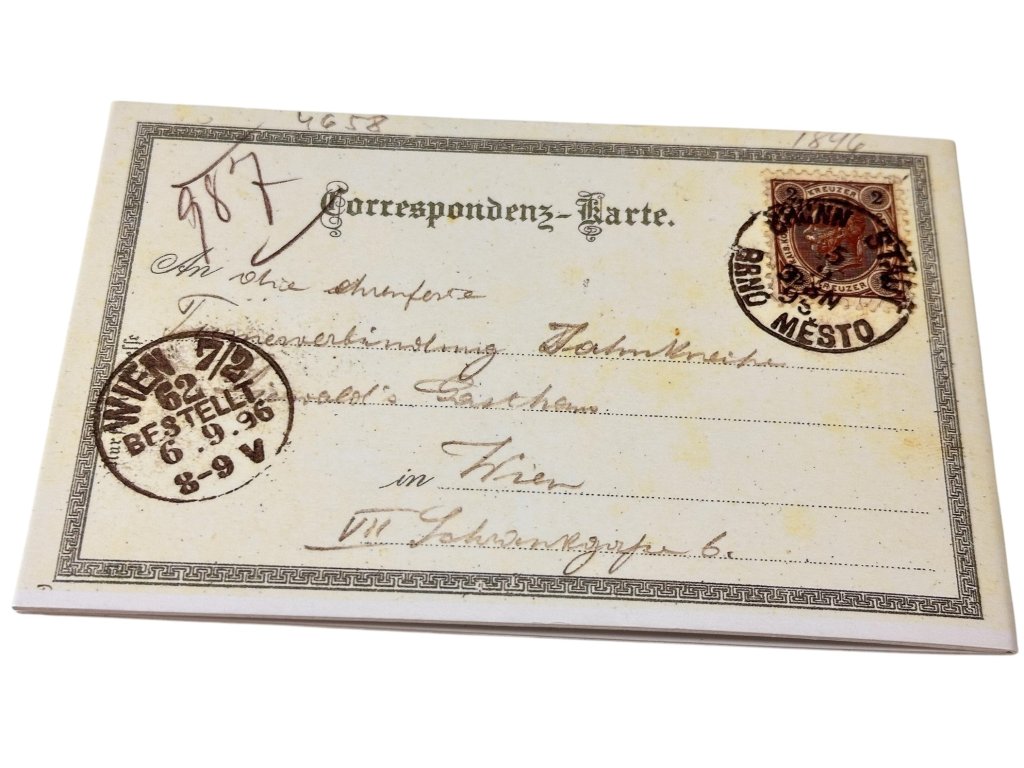 4658
1896
987
Correspondenz-Karte.
2 KREUZER 2
KREUZER
BRÜNN STADT
BRNO MĚSTO
An die ehrenfeste
Jahnkneipe
Gasthaus
in Wien
VII Schrankgasse 6.
WIEN 7/2
62
BESTELLT
6.9.96
8-9 V